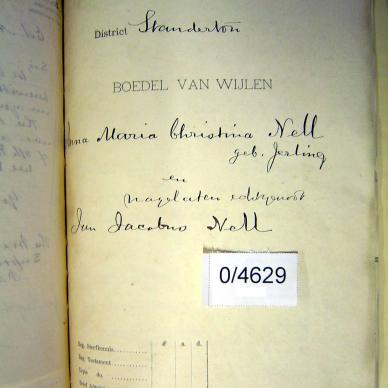 District Standerton
BOEDEL VAN WIJLEN
Anna Maria Christina Nell
geb. Jerling
en
nagelaten echtgenoot
Jan Jacobus Nell
0/4629
£ s. d.
Reg. Sterfkennis
Reg. Testament
Kopie do.